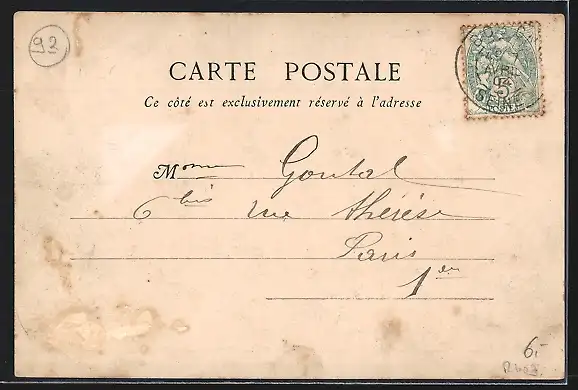 92
CARTE POSTALE
Ce côté est exclusivement réservé à l'adresse
Mme Goutal
6 bis rue Thérèse
Paris
1er
6.-